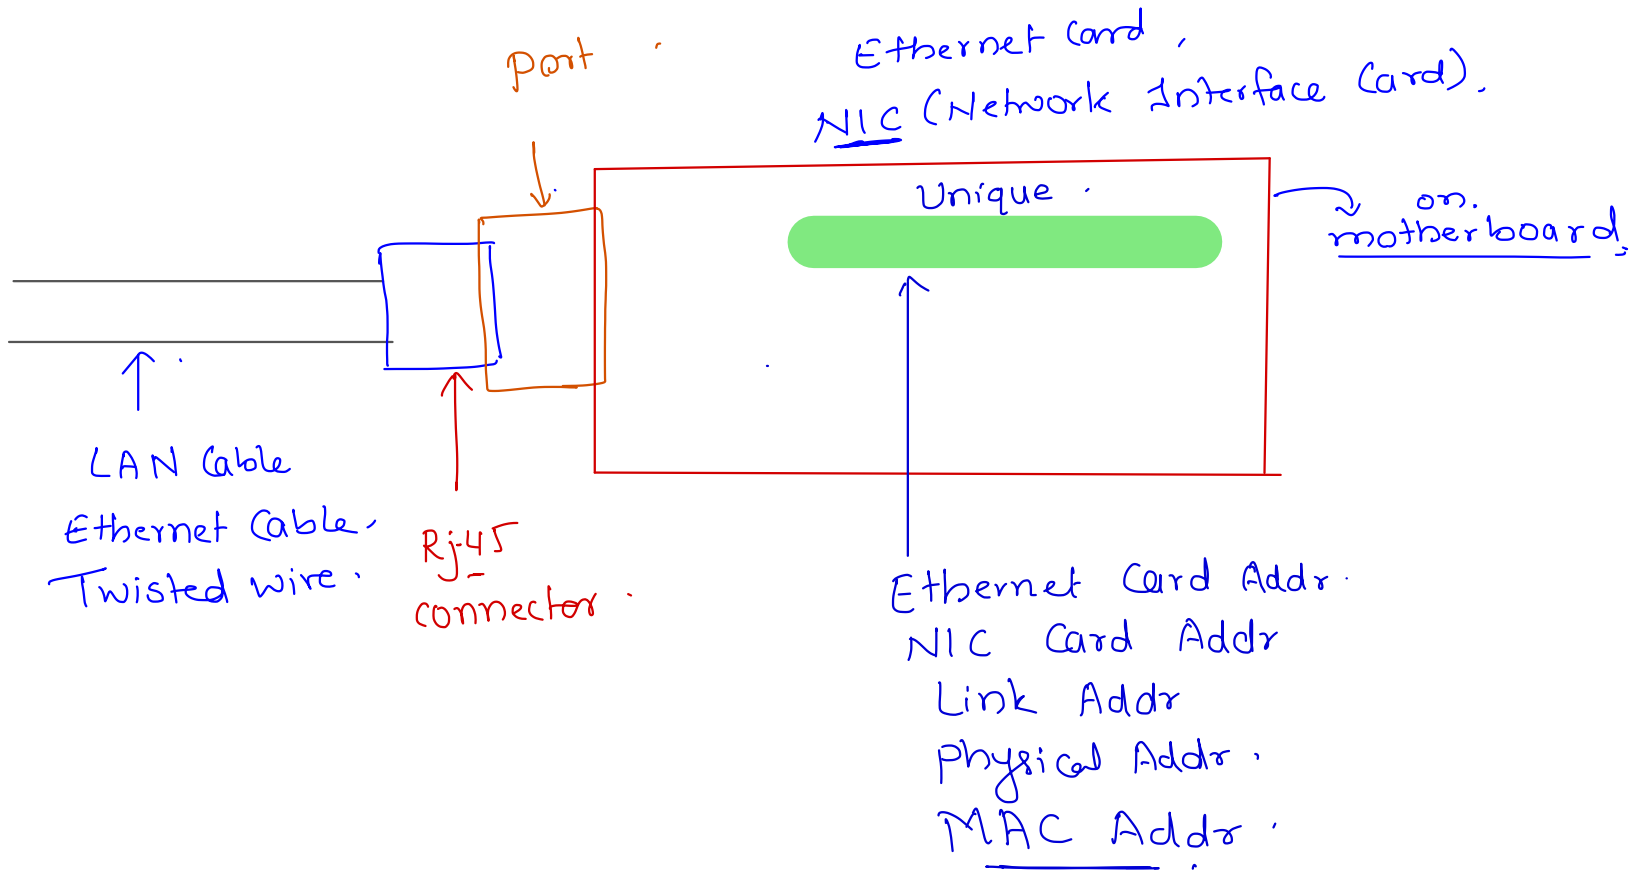 Port
Ethernet Card,
NIC (Network Interface Card).
Unique
on.
motherboard.
LAN Cable
Ethernet Cable.
Twisted wire.
Rj-45
connector.
Ethernet Card Addr.
NIC Card Addr
Link Addr
Physical Addr.
MAC Addr.